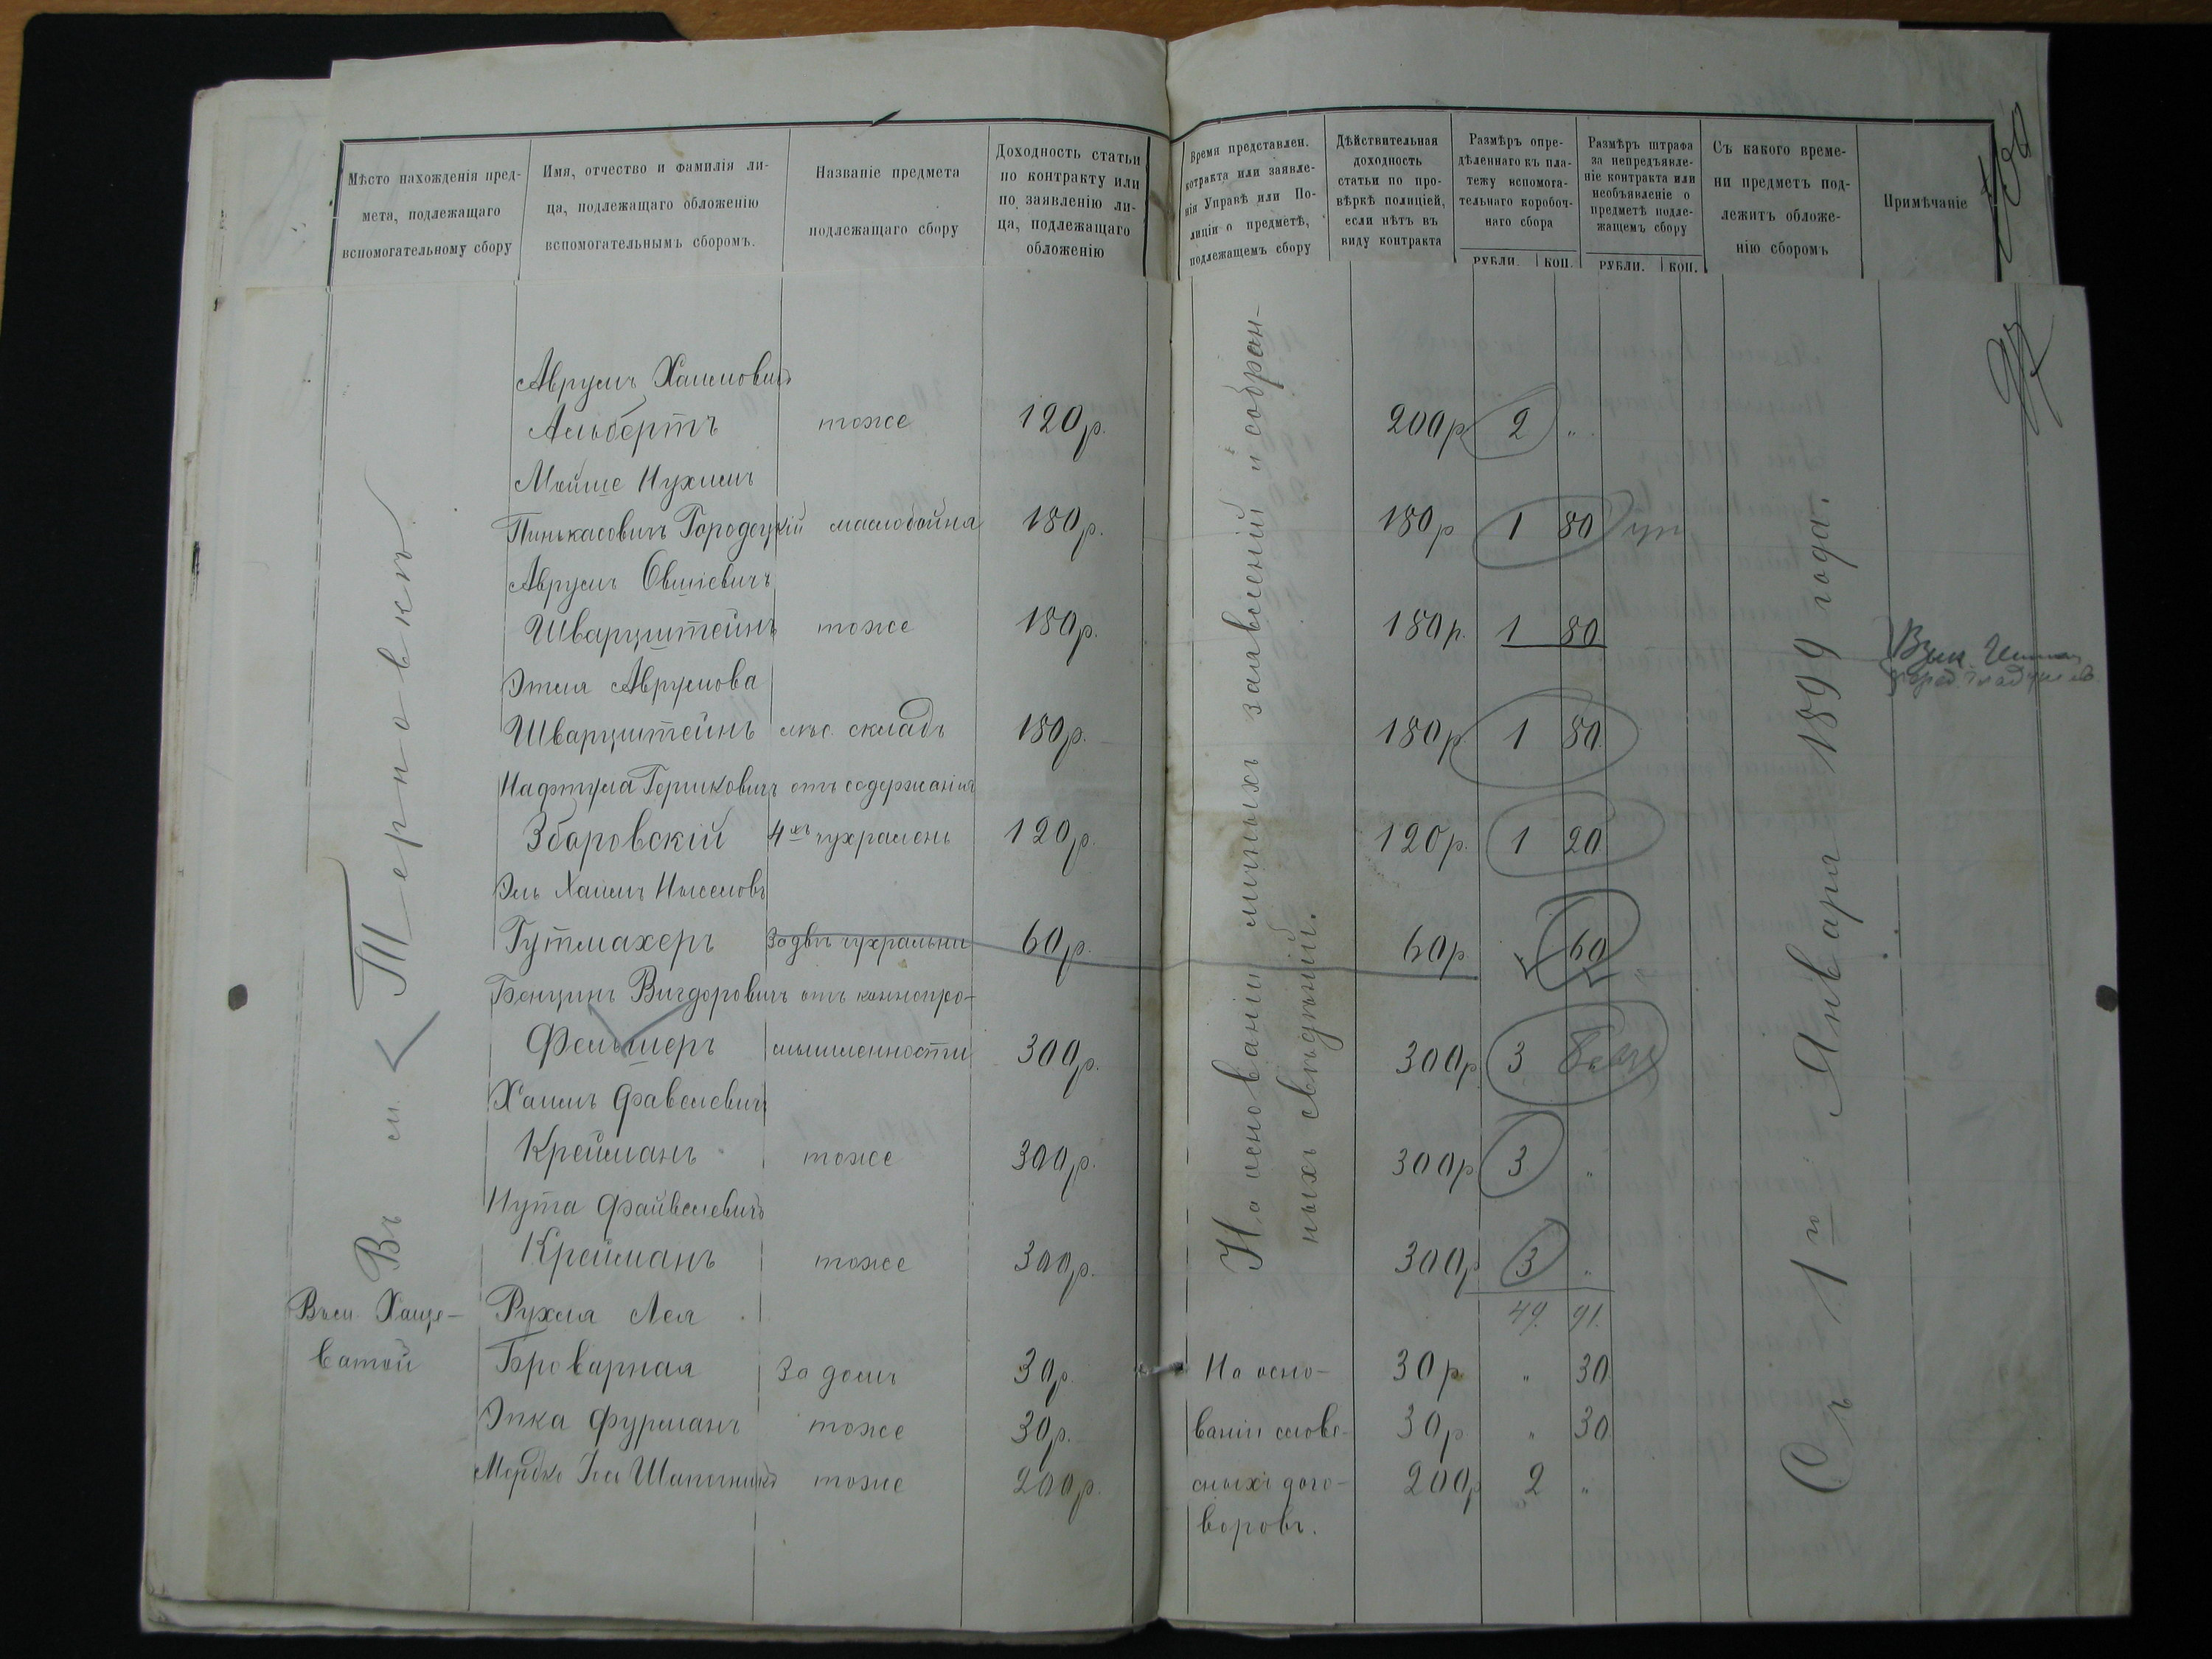 Мѣсто нахожденія пред-
мета, подлежащаго
вспомогательному сбору
Имя, отчество и фамилія ли-
ца, подлежащаго обложенію
вспомогательнымъ сборомъ.
Названіе предмета
подлежащаго сбору
Доходность статьи
по контракту или
по заявленію ли-
ца, подлежащаго
обложенію
Время представлен.
контракта или заявле-
нія Управѣ или По-
лиціи о предметѣ,
подлежащемъ сбору
Дѣйствительная
доходность
статьи по про-
вѣркѣ полиціей,
если нѣтъ въ
виду контракта
Размѣръ опре-
дѣленнаго къ пла-
тежу вспомога-
тельнаго коробоч-
наго сбора
РУБЛИ. КОП.
Размѣръ штрафа
за непредъявле-
ніе контракта или
необъявленіе о
предметѣ подле-
жащемъ сбору
РУБЛИ. КОП.
Съ какого време-
ни предметъ под-
лежитъ обложе-
нію сборомъ
Примѣчаніе
Въ м. Терновкѣ
На основаніи личныхъ заявленій и собран-
ныхъ свѣдѣній.
Съ 1го Января 1899 года.
Аврумъ Хаимовичъ
Альбертъ тоже 120р. 200р 2 „
Мойше Нухимъ
Пинькасовичъ Городецкій маслобойня 180р. 180р 1 80
Аврумъ Овшіевичъ
Шварцштейнъ тоже 180р. 180р. 1 80
Этля Аврумова
Шварцштейнъ лѣс. складъ 180р. 180р 1 80
Нафтула Гершковичъ отъ содержанія
Збаровскій 4хъ цухраленъ 120р. 120р. 1 20
Эль Хаимъ
Гутмахеръ За двѣ цухральни 60р. 60р. 60
Бенцинъ Вигдоровичъ отъ коннопро-
Фельшеръ мышленности 300р. 300р 3
Хаимъ Фавелевичъ
Крейманъ тоже 300р. 300р 3 „
Нута Файвелевичъ
Крейманъ тоже 300р. 300р 3 „
49 91.
Въ м. Хаще- Рухля Лея
ватой Броварная За домъ 30р. На осно- 30р „ 30
Эпка Фурманъ тоже 30р. ваніи слове- 30р „ 30
Мордко тоже 200р. сныхъ дого- 200р 2 „
воровъ.